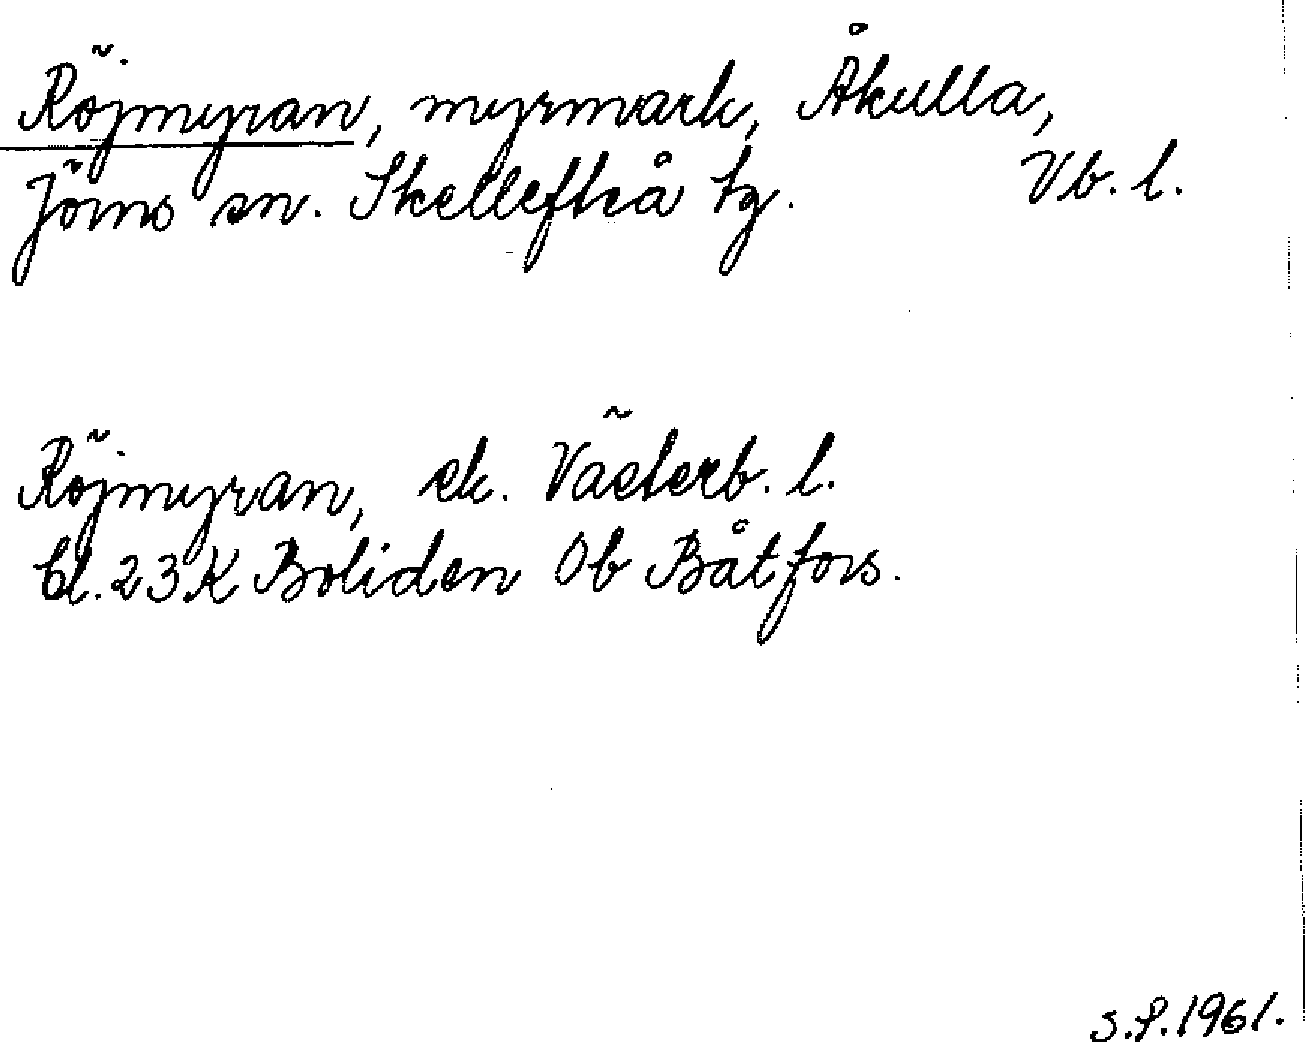 Röjmyran, myrmark, Åkulla,
Jörns sn. Skellefteå tg. Vb. l.
Röjmyran, ek. Västerb. l.
bl. 23 K Boliden Ob Båtfors.
S.S. 1961.